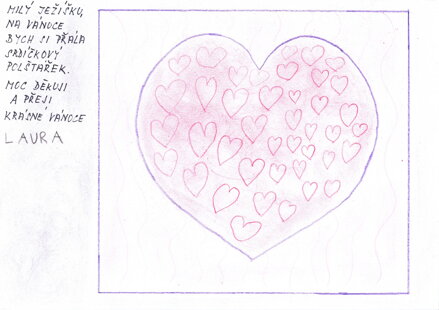 MILÝ JEŽÍŠKU,
NA VÁNOCE
BYCH SI PŘÁLA
SRDÍČKOVÝ
POLŠTÁŘEK.
MOC DĚKUJI
A PŘEJI
KRÁSNÉ VÁNOCE
LAURA